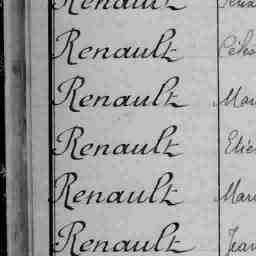 Renault
Renault
Renault Mar
Renault Etie
Renault Mar
Renault Jean